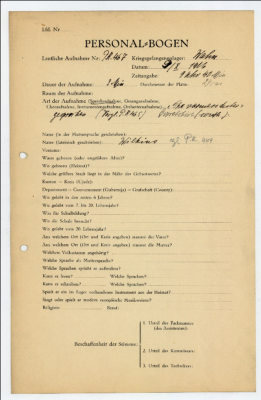 Lfd. Nr.
PERSONAL-BOGEN
Lautliche Aufnahme Nr.: PK 467
Kriegsgefangenenlager: Wahn
Datum: X 1916
Zeitangabe:
Dauer der Aufnahme: 2 Min
Durchmesser der Platte:
Raum der Aufnahme:
Art der Aufnahme (Sprechaufnahme, Gesangsaufnahme,
Choraufnahme, Instrumentenaufnahme, Orchesteraufnahme):
Name (in der Muttersprache geschrieben):
Name (lateinisch geschrieben): Wilkins
Vorname:
Wann geboren (oder ungefähres Alter)?
Wo geboren (Heimat)?
Welche größere Stadt liegt in der Nähe des Geburtsortes?
Kanton — Kreis (Ujedz):
Department — Gouvernement (Gubernija) — Grafschaft (County):
Wo gelebt in den ersten 6 Jahren?
Wo gelebt vom 7. bis 20. Lebensjahr?
Was für Schulbildung?
Wo die Schule besucht?
Wo gelebt vom 20. Lebensjahr?
Aus welchem Ort (Ort und Kreis angeben) stammt der Vater?
Aus welchem Ort (Ort und Kreis angeben) stammt die Mutter?
Welchem Volksstamm angehörig?
Welche Sprache als Muttersprache?
Welche Sprachen spricht er außerdem?
Kann er lesen?
Welche Sprachen?
Kann er schreiben?
Welche Sprachen?
Spielt er ein im Lager vorhandenes Instrument aus der Heimat?
Singt oder spielt er modern europäische Musikweisen?
Religion:
Beruf:
Beschaffenheit der Stimme:
1. Urteil des Fachmannes
(des Assistenten):
2. Urteil des Kommissars:
3. Urteil des Technikers: